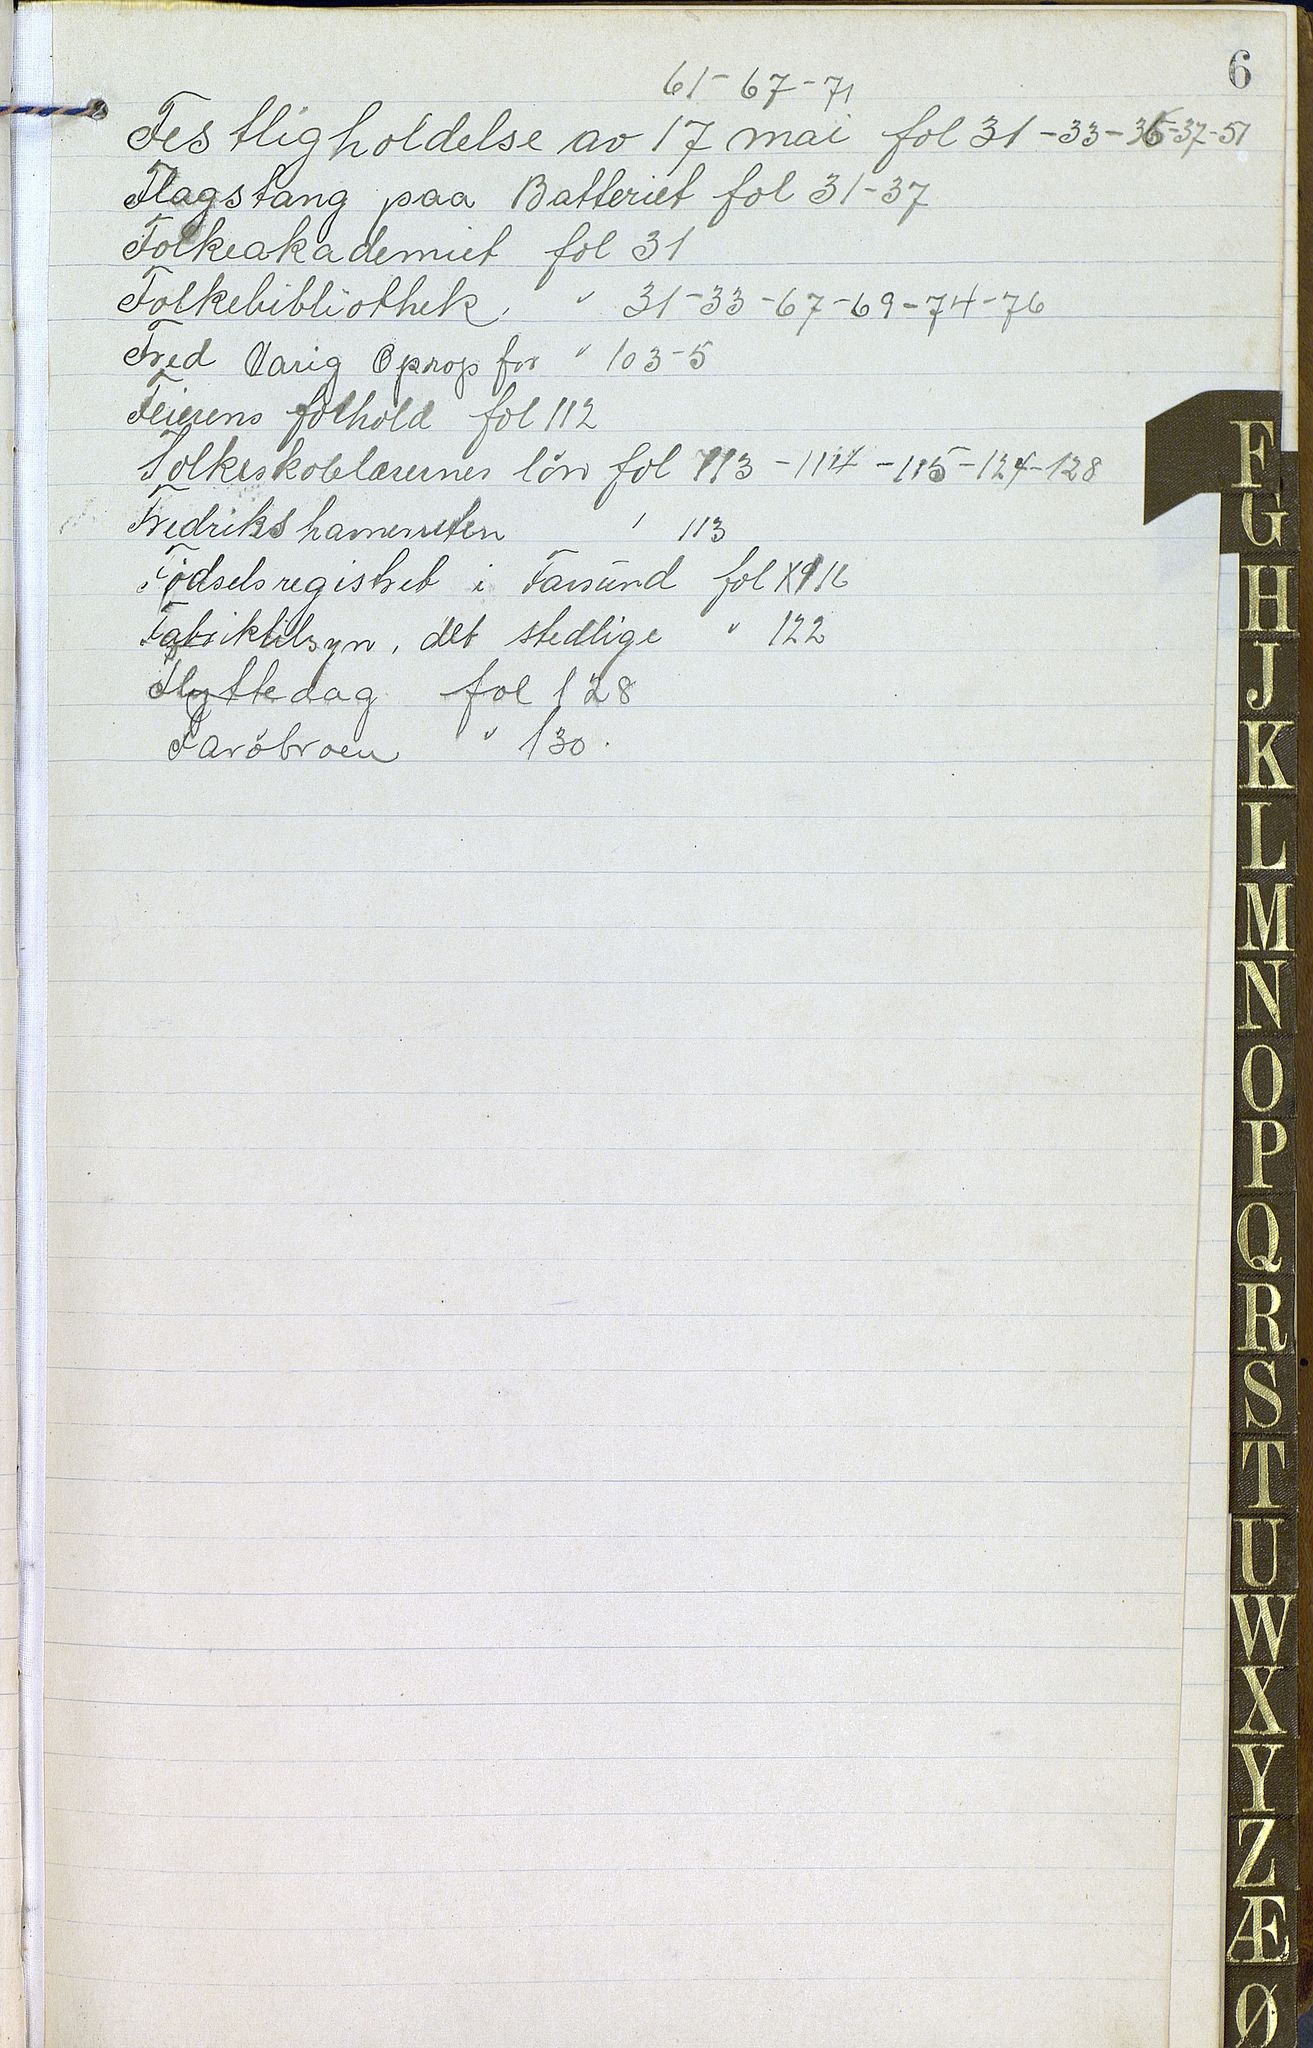 6
61-67-71
Festligholdelse av 17 mai fol 31-33-36-37-51
Flagstang paa Batteriet fol 31-37
Folkeakademiet fol 31
Folkebibliothek, " 31-33-67-69-74-76
Fred Varig Oprop for " 103-5
Feierens forhold fol 112
Folkeskolelærernes lön fol 113-114-115-124-128
Fredrikshavneruten " 113
Födselsregistret i Farsund fol 116
Fabriktilsyn, det stedlige " 122
Flyttedag fol 128
Faröbroen " 130.
F
G
H
J
K
L
M
N
O
P
Q
R
S
T
U
W
X
Y
Z
Æ
Ø